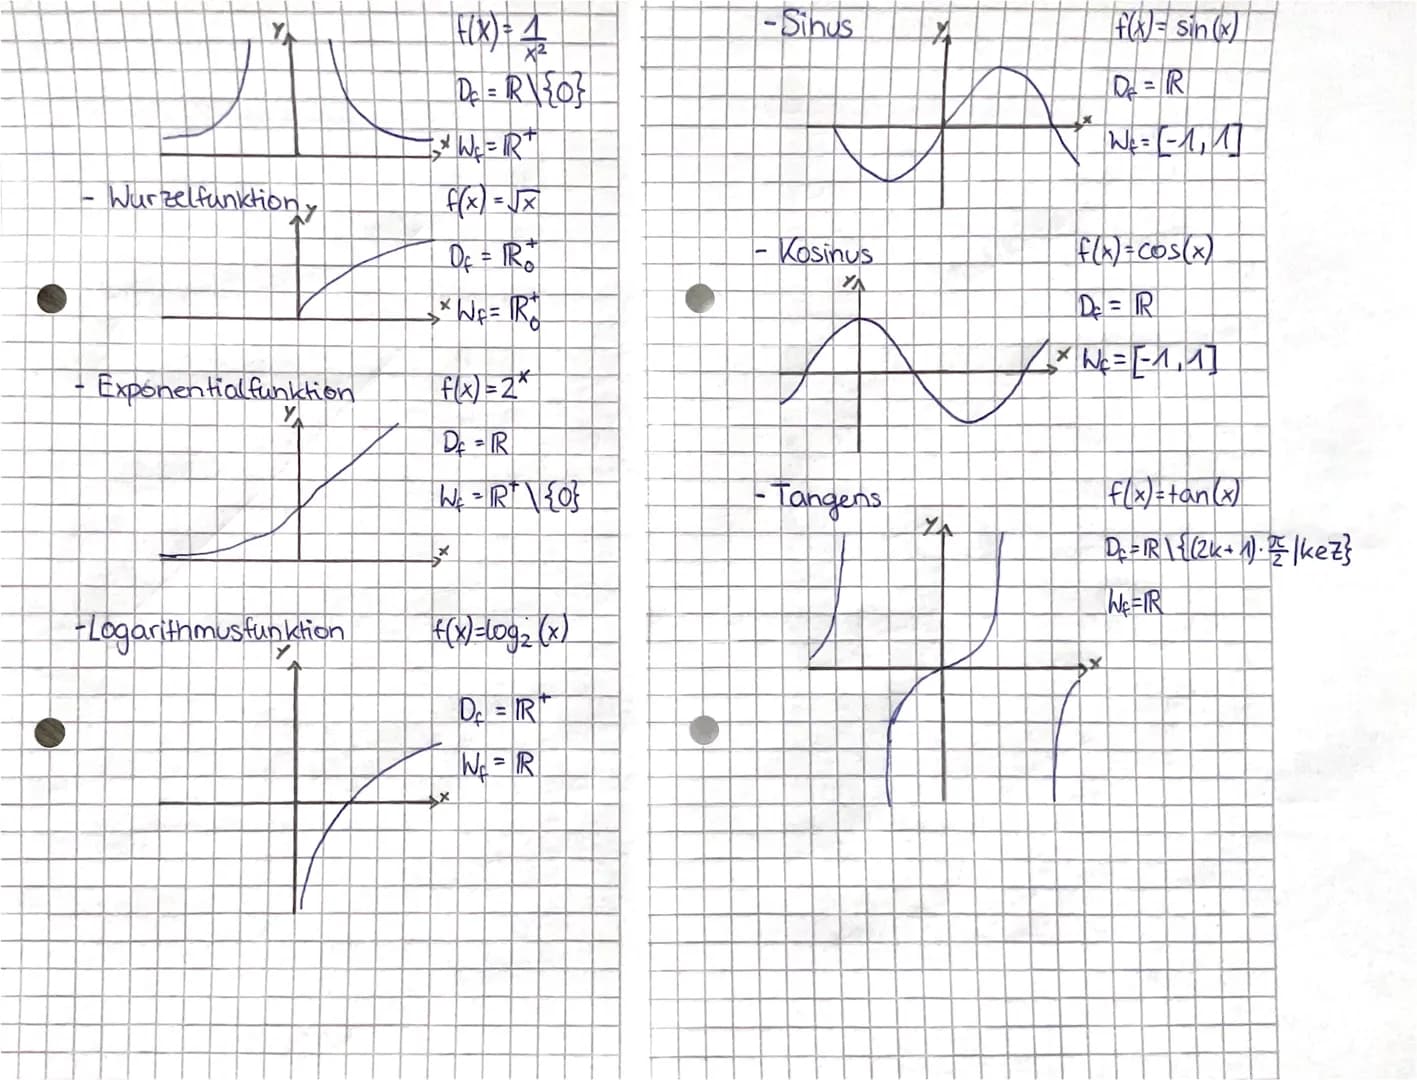 y f(x) = 1/x²
D_f = ℝ\{0}
x W_f = ℝ⁺
- Wurzelfunktion f(x) = √x
y
D_f = ℝ₀⁺
x W_f = ℝ₀⁺
- Exponentialfunktion f(x) = 2ˣ
y
D_f = ℝ
W_f = ℝ⁺\{0}
x
- Logarithmusfunktion f(x) = log₂(x)
y
D_f = ℝ⁺
W_f = ℝ
x
- Sinus y f(x) = sin(x)
D_f = ℝ
x
W_f = [-1, 1]
- Kosinus f(x) = cos(x)
y
D_f = ℝ
x W_f = [-1, 1]
- Tangens f(x) = tan(x)
y
D_f = ℝ\{(2k+1)·π/2 | k∈ℤ}
W_f = ℝ
x